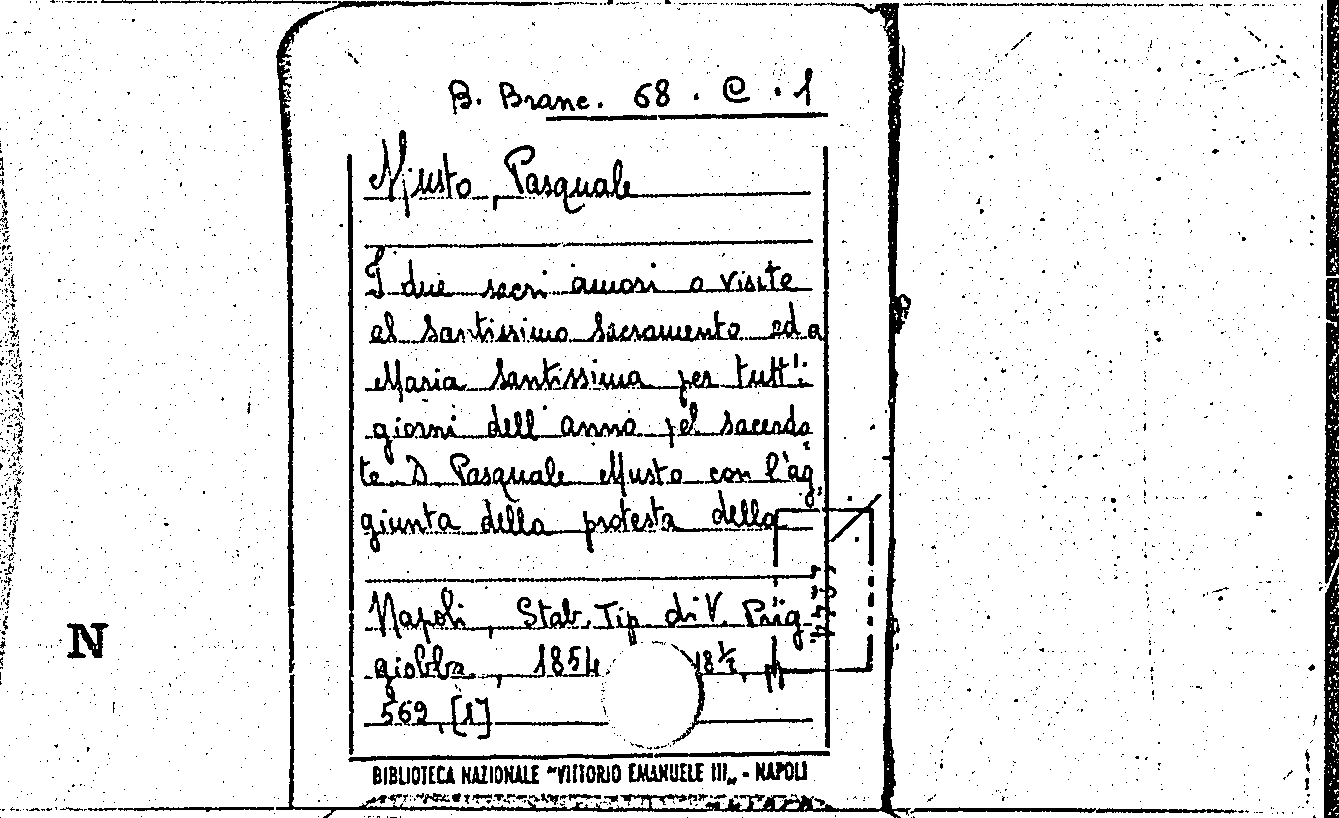 B. Branc. 68 . C . 1
Musto, Pasquale
I due sacri amori o visite
al Santissimo Sacramento ed a
Maria Santissima per tutt'i
giorni dell'anno pel sacerdo
te D. Pasquale Musto con l'ag,
giunta della protesta della
Napoli, Stab. Tip. di V. Prig,
giobba, 1854 18½, pp
569, [1]
N
BIBLIOTECA NAZIONALE "VITTORIO EMANUELE III„ - NAPOLI